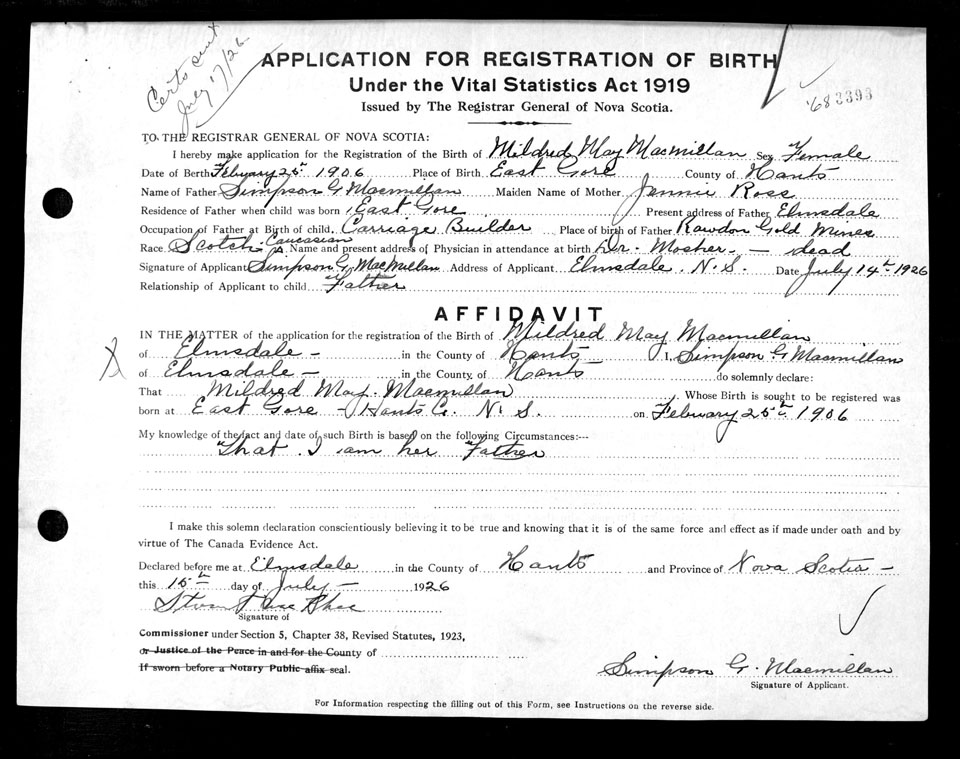 Certs sent
July 17/26
APPLICATION FOR REGISTRATION OF BIRTH
Under the Vital Statistics Act 1919
Issued by The Registrar General of Nova Scotia.
68 3393
TO THE REGISTRAR GENERAL OF NOVA SCOTIA:
I hereby make application for the Registration of the Birth of Mildred May Macmillan Sex Female
Date of Berth February 25th 1906 Place of Birth East Gore County of Hants
Name of Father Simpson G Macmillan Maiden Name of Mother Jennie Ross
Residence of Father when child was born East Gore Present address of Father Elmsdale
Occupation of Father at Birth of child. Carriage Builder Place of birth of Father Rawdon Gold Mines
Race. Scotch Caucasian Name and present address of Physician in attendance at birth Dr. Mosher - dead
Signature of Applicant Simpson G MacMillan Address of Applicant Elmsdale. N.S. Date July 14th 1926
Relationship of Applicant to child Father
AFFIDAVIT
IN THE MATTER of the application for the registration of the Birth of Mildred May Macmillan
of Elmsdale - in the County of Hants I, Simpson G Macmillan
of Elmsdale - in the County of Hants do solemnly declare:
That Mildred May Macmillan Whose Birth is sought to be registered was
born at East Gore Hants Co. N.S. on February 25th 1906
My knowledge of the fact and date of such Birth is based on the following Circumstances:--
That I am her Father
I make this solemn declaration conscientiously believing it to be true and knowing that it is of the same force and effect as if made under oath and by
virtue of The Canada Evidence Act.
Declared before me at Elmsdale in the County of Hants and Province of Nova Scotia -
this 15th day of July - 1926
Signature of
Commissioner under Section 5, Chapter 38, Revised Statutes, 1923,
or Justice of the Peace in and for the County of
If sworn before a Notary Public affix seal.
Simpson G. Macmillan
Signature of Applicant.
For Information respecting the filling out of this Form, see Instructions on the reverse side.